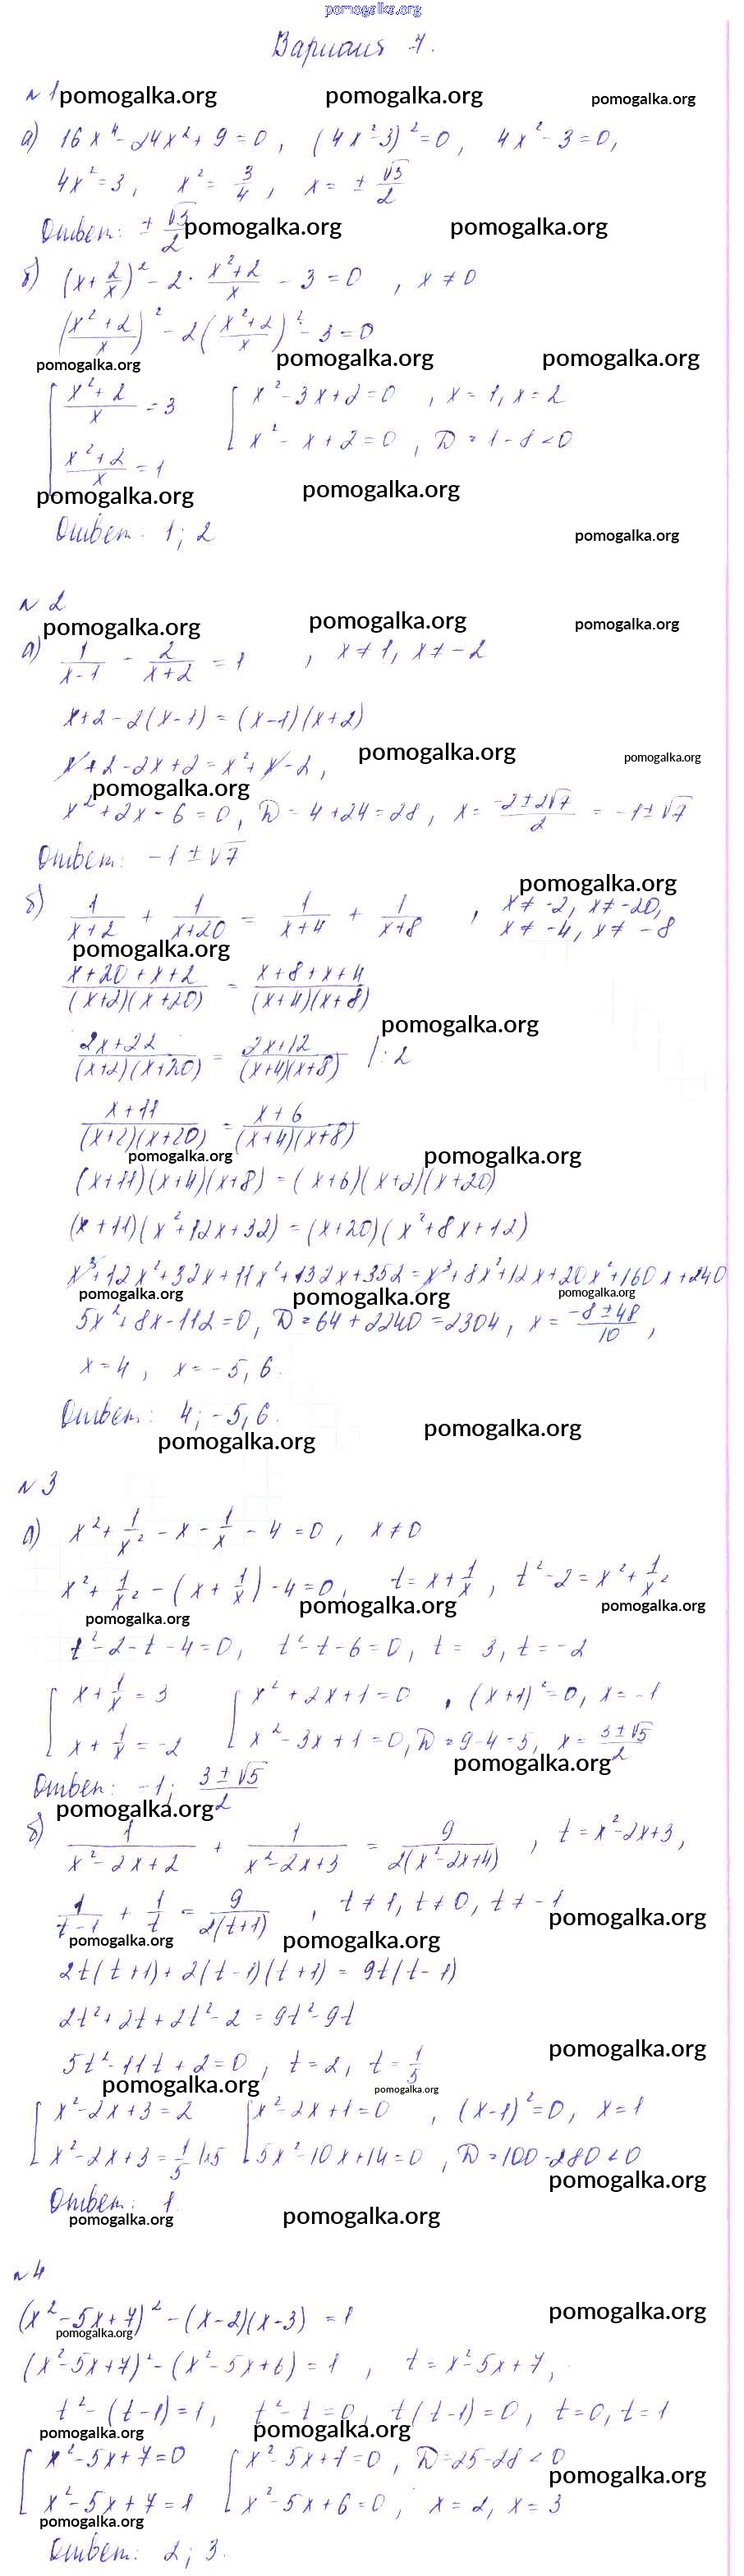 pomogalka.org
Вариант 7.
№ 1 pomogalka.org pomogalka.org pomogalka.org
а) 16x⁴ - 24x² + 9 = 0, (4x² - 3)² = 0, 4x² - 3 = 0,
4x² = 3, x² = 3/4, x = ± √3/2
Ответ: ± √3/2 pomogalka.org pomogalka.org
б) (x + 2/x)² - 2 · (x² + 2)/x - 3 = 0, x ≠ 0
((x² + 2)/x)² - 2((x² + 2)/x)² - 3 = 0
pomogalka.org pomogalka.org pomogalka.org
[ (x² + 2)/x = 3 [ x² - 3x + 2 = 0, x = 1, x = 2
(x² + 2)/x = 1 x² - x + 2 = 0, D = 1 - 8 < 0
pomogalka.org pomogalka.org
Ответ: 1; 2 pomogalka.org
№ 2
pomogalka.org pomogalka.org pomogalka.org
а) 1/(x-1) - 2/(x+2) = 1, x ≠ 1, x ≠ -2
x + 2 - 2(x - 1) = (x - 1)(x + 2)
x + 2 - 2x + 2 = x² + x - 2, pomogalka.org pomogalka.org
pomogalka.org
x² + 2x - 6 = 0, D = 4 + 24 = 28, x = (-2 ± 2√7)/2 = -1 ± √7
Ответ: -1 ± √7
pomogalka.org
б) 1/(x+2) + 1/(x+20) = 1/(x+4) + 1/(x+8), x ≠ -2, x ≠ -20,
x ≠ -4, x ≠ -8
pomogalka.org
(x+20+x+2)/((x+2)(x+20)) = (x+8+x+4)/((x+4)(x+8))
pomogalka.org
(2x+22)/((x+2)(x+20)) = (2x+12)/((x+4)(x+8)) |: 2
(x+11)/((x+2)(x+20)) = (x+6)/((x+4)(x+8))
pomogalka.org pomogalka.org
(x+11)(x+4)(x+8) = (x+6)(x+2)(x+20)
(x+11)(x²+12x+32) = (x+20)(x²+8x+12)
x³+12x²+32x+11x²+132x+352 = x³+8x²+12x+20x²+160x+240
pomogalka.org pomogalka.org pomogalka.org
5x²+8x-112=0, D=64+2240=2304, x = (-8 ± 48)/10,
x = 4, x = -5,6.
Ответ: 4; -5,6.
pomogalka.org pomogalka.org
№ 3
а) x² + 1/x² - x - 1/x - 4 = 0, x ≠ 0
x² + 1/x² - (x + 1/x) - 4 = 0, t = x + 1/x, t² - 2 = x² + 1/x²
pomogalka.org pomogalka.org pomogalka.org
t² - 2 - t - 4 = 0, t² - t - 6 = 0, t = 3, t = -2
[ x + 1/x = 3 [ x² + 2x + 1 = 0, (x+1)² = 0, x = -1
x + 1/x = -2 x² - 3x + 1 = 0, D = 9 - 4 = 5, x = (3 ± √5)/2
pomogalka.org
Ответ: -1; (3 ± √5)/2
pomogalka.org
б) 1/(x²-2x+2) + 1/(x²-2x+3) = 9/(2(x²-2x+4)), t = x²-2x+3,
1/(t-1) + 1/t = 9/(2(t+1)), t ≠ 1, t ≠ 0, t ≠ -1
pomogalka.org pomogalka.org pomogalka.org
2t(t+1) + 2(t-1)(t+1) = 9t(t-1)
2t² + 2t + 2t² - 2 = 9t² - 9t
pomogalka.org
5t² - 11t + 2 = 0, t = 2, t = 1/5
pomogalka.org pomogalka.org
[ x² - 2x + 3 = 2 [ x² - 2x + 1 = 0, (x-1)² = 0, x = 1
x² - 2x + 3 = 1/5 |·5 5x² - 10x + 14 = 0, D = 100 - 280 < 0
pomogalka.org
Ответ: 1.
pomogalka.org pomogalka.org
№ 4
(x² - 5x + 7)² - (x-2)(x-3) = 1 pomogalka.org
pomogalka.org
(x² - 5x + 7)² - (x² - 5x + 6) = 1, t = x² - 5x + 7,
t² - (t - 1) = 1, t² - t = 0, t(t-1) = 0, t = 0, t = 1
pomogalka.org pomogalka.org
[ x² - 5x + 7 = 0 [ x² - 5x + 7 = 0, D = 25 - 28 < 0
pomogalka.org
x² - 5x + 7 = 1 x² - 5x + 6 = 0, x = 2, x = 3
pomogalka.org
Ответ: 2; 3.